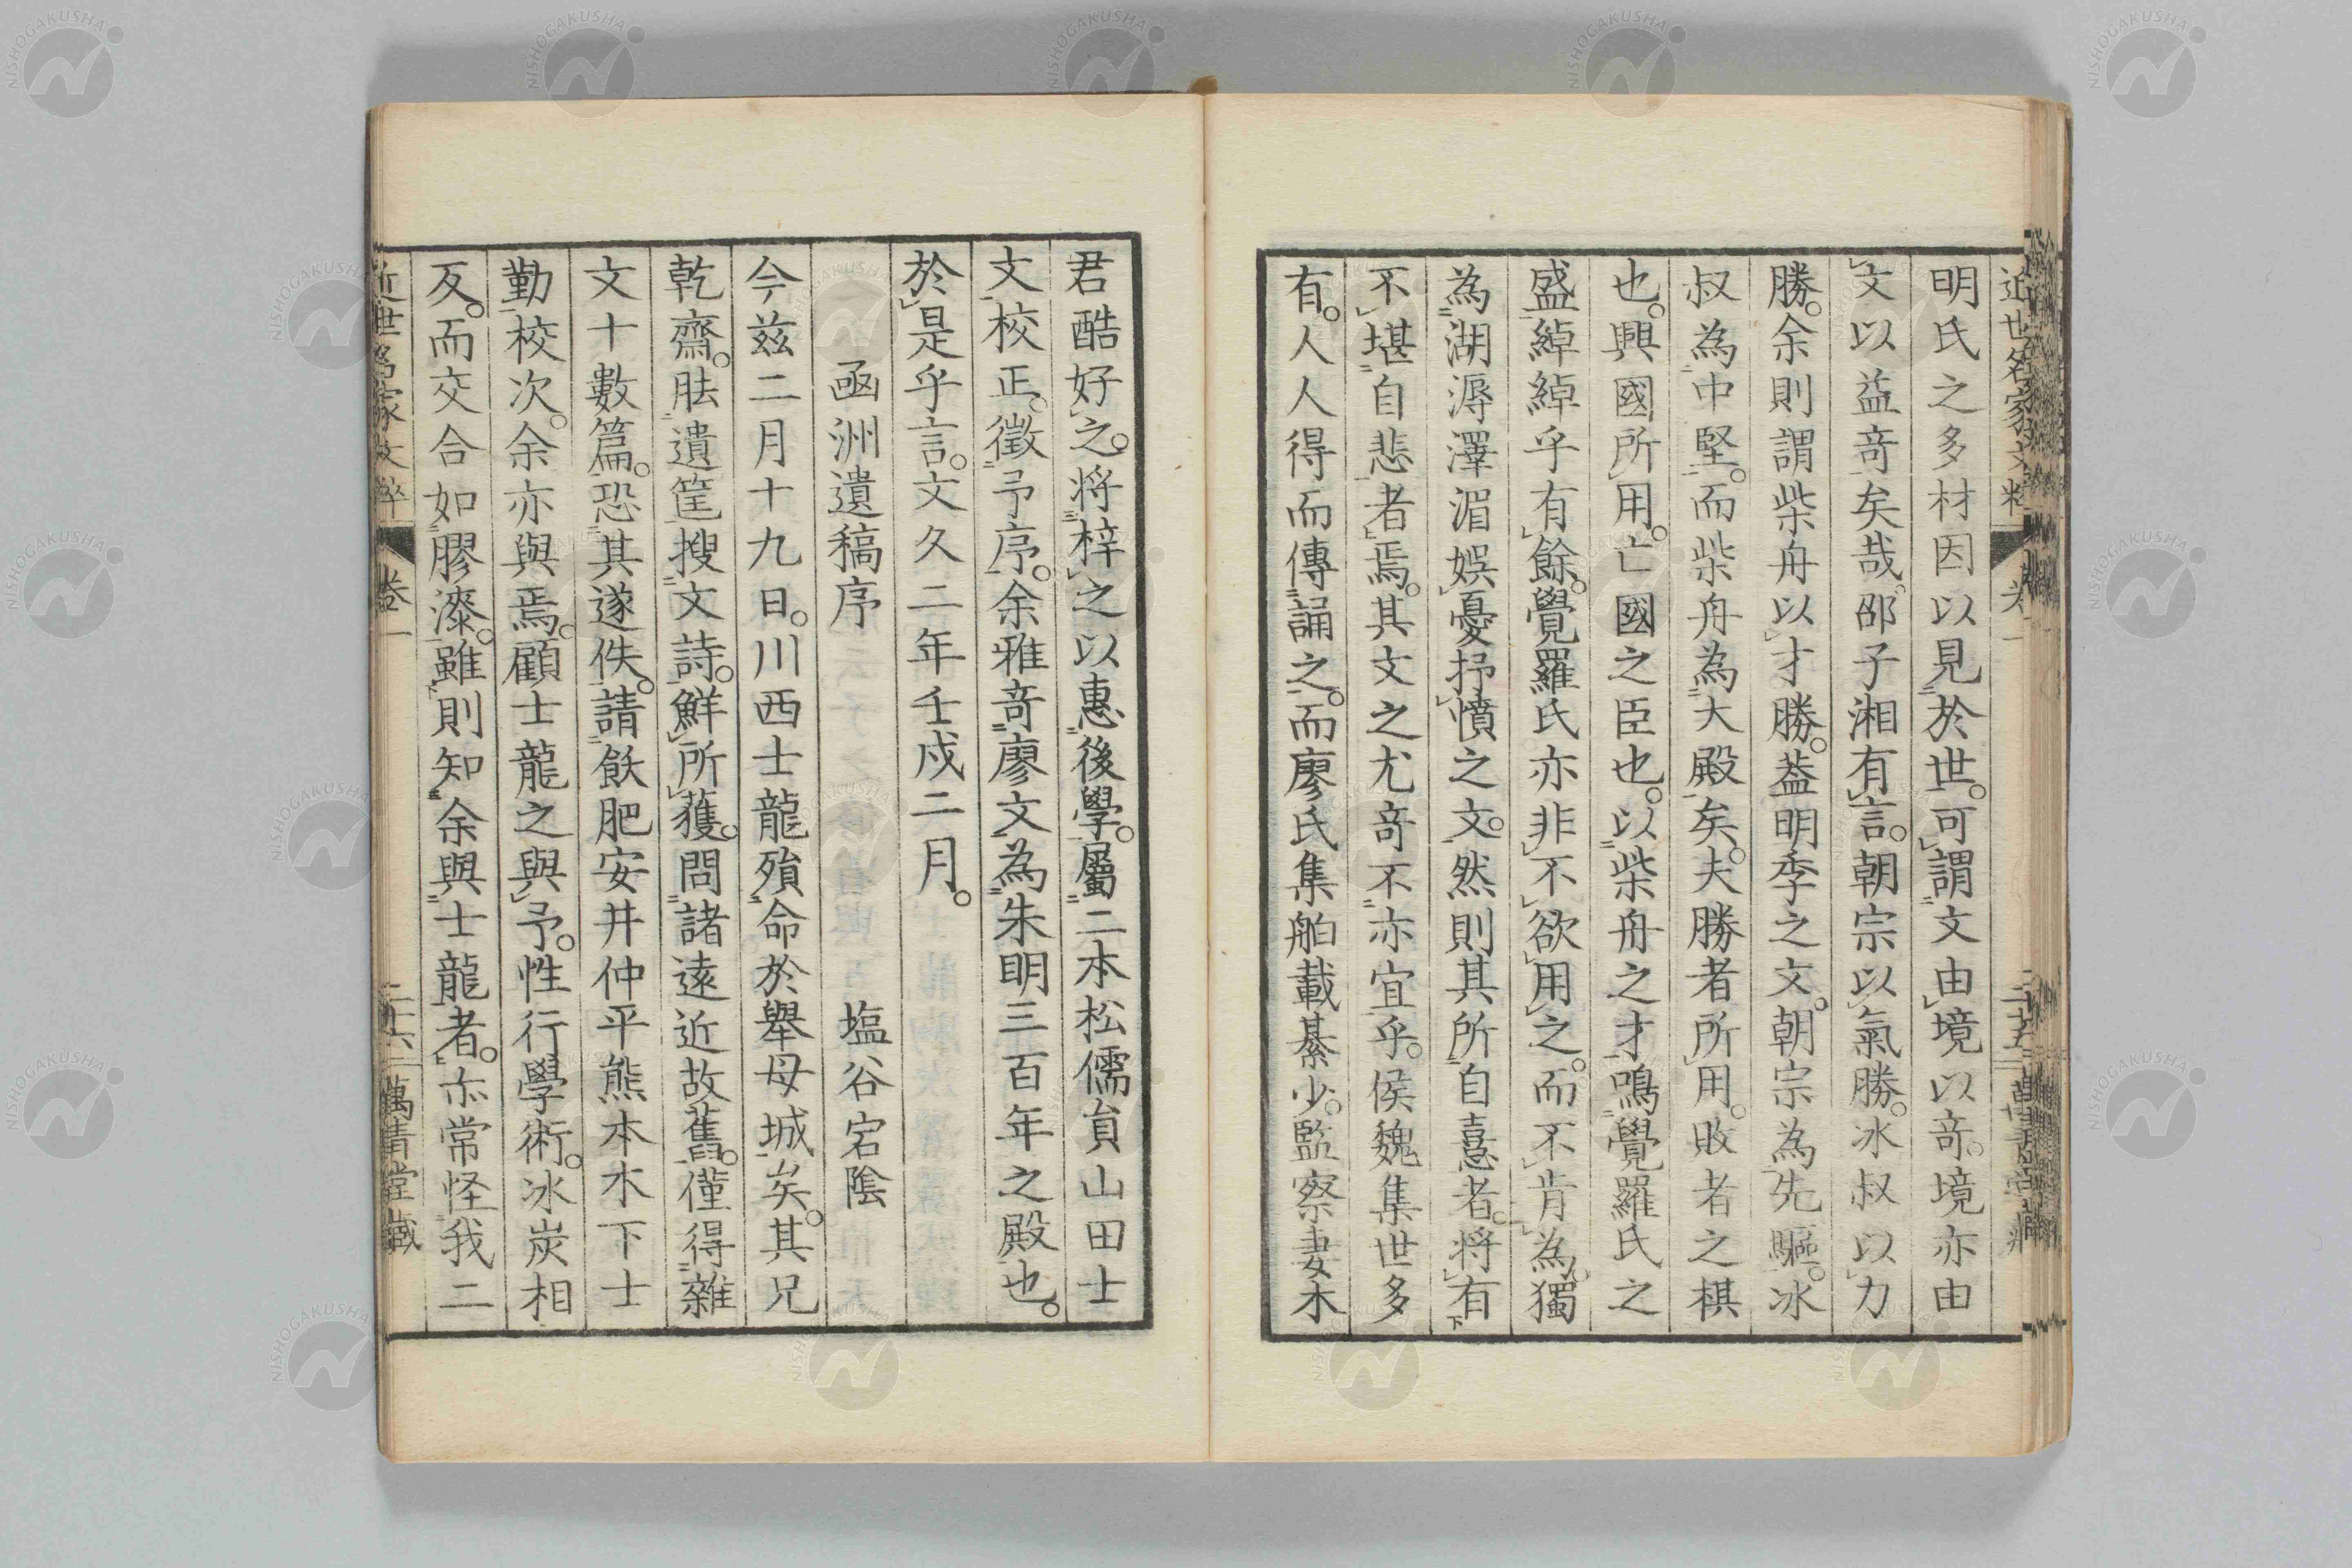 明氏之多材因以見於世。可謂文由境以奇。境亦由
文以益奇矣哉。邵子湘有言。朝宗以氣勝。冰叔以力
勝。余則謂柴舟以才勝。葢明季之文。朝宗為先驅。冰
叔為中堅。而柴舟為大殿矣。夫勝者所用。敗者之棋
也。興國所用。亡國之臣也。以柴舟之才鳴覺羅氏之
盛綽綽乎有餘。覺羅氏亦非不欲用之。而不肯為。獨
為湖溽澤湄娛憂抒憤之文。然則其所自憙者。將有
不堪自悲者焉。其文之尤奇不亦宜乎。侯魏集世多
有。人人得而傳誦之。而廖氏集舶載綦少。監察妻木
君酷好之。將梓之以惠後學。屬二本松儒員山田士
文校正。徵予序。余雅奇廖文為朱明三百年之殿也。
於是乎言。文久二年壬戌二月。
函洲遺稿序 塩谷宕陰
今茲二月十九日。川西士龍殞命於舉母城矣。其兄
乾齋。胠遺筐搜文詩。鮮所獲。問諸遠近故舊。僅得雜
文十數篇。恐其遂佚。請飫肥安井仲平熊本木下士
勤校次。余亦與焉。顧士龍之與予。性行學術。冰炭相
反。而交合如膠漆。雖則知余與士龍者。亦常怪我二
近世名家文粹 卷一 二十六 萬青堂藏